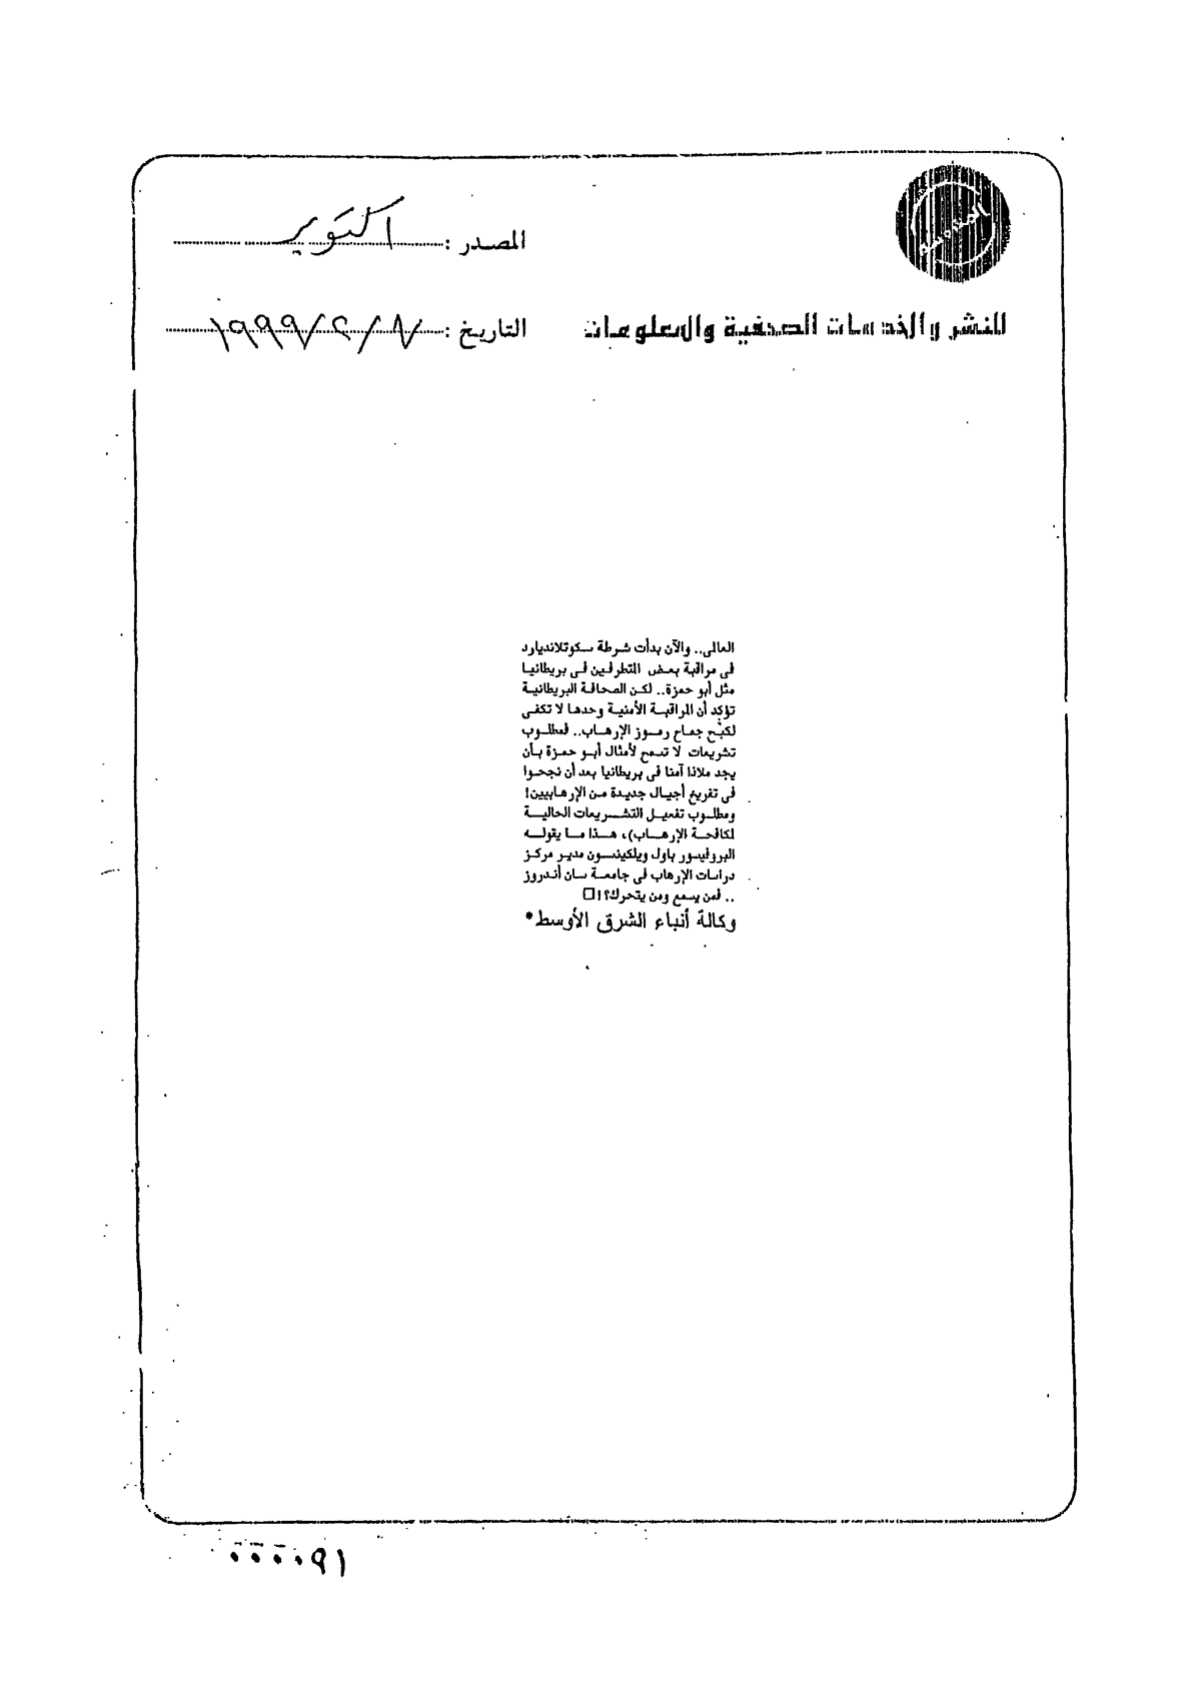 المصدر : اكتوبر
للنشر والخدمات الصحفية والمعلومات
التاريخ : ٧ / ٢ / ١٩٩٩
العالى.. والآن بدأت شرطة سكوتلانديارد
فى مراقبة بعض المتطرفين فى بريطانيا
مثل أبو حمزة.. لكن الصحافة البريطانية
تؤكد أن المراقبة الأمنية وحدها لا تكفى
لكبح جماح رموز الإرهاب.. فمطلوب
تشريعات لا تسمح لأمثال أبو حمزة بأن
يجد ملاذا آمنا فى بريطانيا بعد أن نجحوا
فى تفريخ أجيال جديدة من الإرهابيين!
ومطلوب تفعيل التشريعات الحالية
لمكافحة الإرهاب)، هذا ما يقوله
البروفيسور باول ويلكينسون مدير مركز
دراسات الإرهاب فى جامعة سان أندروز
.. فمن يسمع ومن يتحرك؟!□
وكالة أنباء الشرق الأوسط*